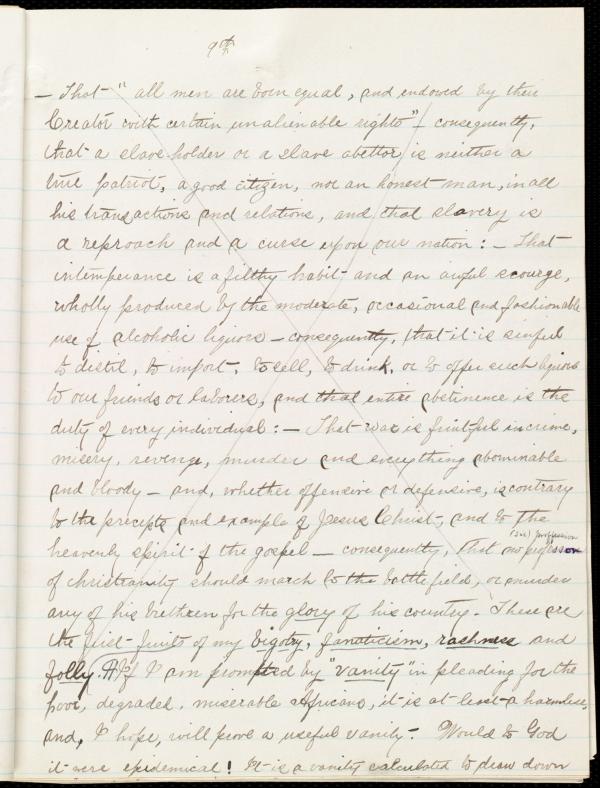 9th
— That "all men are born equal, and endowed by their
Creator with certain unalienable rights" — consequently,
that a slave-holder or a slave abettor is neither a
true patriot, a good citizen, nor an honest man, in all
his transactions and relations, and that slavery is
a reproach and a curse upon our nation: — That
intemperance is a filthy habit and an awful scourge,
wholly produced by the moderate, occasional and fashionable
use of alcoholic liquors — consequently, that it is sinful
to distil, to import, to sell, to drink, or to offer such liquors
to our friends or laborers, and that entire abstinence is the
duty of every individual: — That war is fruitful in crime,
misery, revenge, murder and everything abominable
and bloody — and, whether offensive or defensive, is contrary
to the precepts and example of Jesus Christ, and to the
heavenly spirit of the gospel — consequently, that no professor
(sic) profession
of christianity should march to the battlefield, or murder
any of his brethren for the glory of his country. These are
the first-fruits of my bigotry, fanaticism, rashness and
folly. If I am prompted by "vanity" in pleading for the
poor, degraded, miserable Africans, it is at least a harmless,
and, I hope, will prove a useful vanity. Would to God
it were epidemical! It is a vanity calculated to draw down